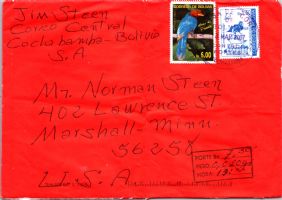 Jim Steen
Coreo Central
Cochabamba-Bolivia
S.A
CORREOS DE BOLIVIA
6.00
MAR 2007
Mr. Norman Steen
402 Lawrence ST
Marshall-Minn.
56258
U.S.A
PORTE Bs.
PESO
HORA